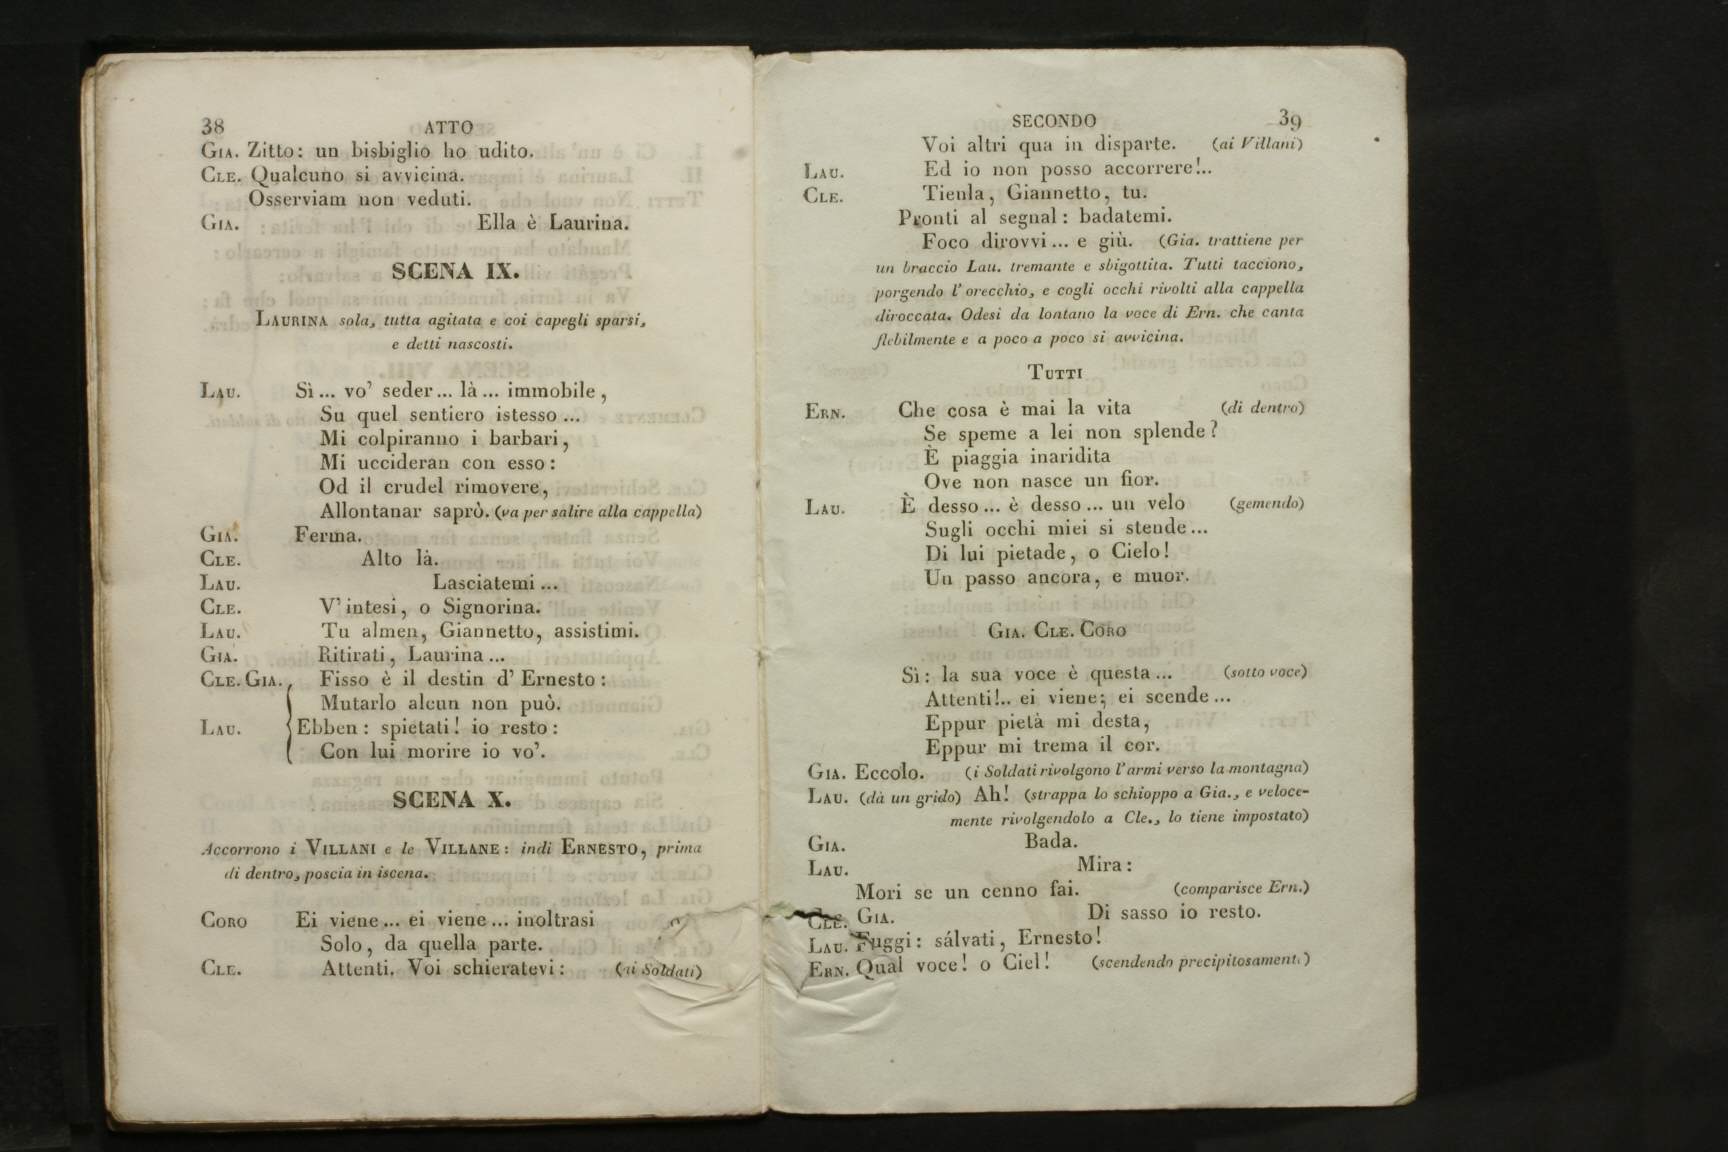 38 ATTO
GIA. Zitto: un bisbiglio ho udito.
CLE. Qualcuno si avvicina.
Osserviam non veduti.
GIA. Ella è Laurina.
SCENA IX.
LAURINA sola, tutta agitata e coi capegli sparsi,
e detti nascosti.
LAU. Sì... vo' seder... là... immobile,
Su quel sentiero istesso...
Mi colpiranno i barbari,
Mi uccideran con esso:
Od il crudel rimovere,
Allontanar saprò. (va per salire alla cappella)
GIA. Ferma.
CLE. Alto là.
LAU. Lasciatemi...
CLE. V'intesi, o Signorina.
LAU. Tu almen, Giannetto, assistimi.
GIA. Ritirati, Laurina...
CLE. GIA. Fisso è il destin d'Ernesto:
Mutarlo alcun non può.
LAU. Ebben: spietati! io resto:
Con lui morire io vo'.
SCENA X.
Accorrono i VILLANI e le VILLANE: indi ERNESTO, prima
di dentro, poscia in iscena.
CORO Ei viene... ei viene... inoltrasi
Solo, da quella parte.
CLE. Attenti. Voi schieratevi: (ai Soldati)
SECONDO 39
Voi altri qua in disparte. (ai Villani)
LAU. Ed io non posso accorrere!..
CLE. Tienla, Giannetto, tu.
Pronti al segnal: badatemi.
Foco dirovvi... e giù. (Gia. trattiene per
un braccio Lau. tremante e sbigottita. Tutti tacciono,
porgendo l'orecchio, e cogli occhi rivolti alla cappella
diroccata. Odesi da lontano la voce di Ern. che canta
flebilmente e a poco a poco si avvicina.
TUTTI
ERN. Che cosa è mai la vita (di dentro)
Se speme a lei non splende?
È piaggia inaridita
Ove non nasce un fior.
LAU. È desso... è desso... un velo (gemendo)
Sugli occhi miei si stende...
Di lui pietade, o Cielo!
Un passo ancora, e muor.
GIA. CLE. CORO
Sì: la sua voce è questa... (sotto voce)
Attenti!.. ei viene; ei scende...
Eppur pietà mi desta,
Eppur mi trema il cor.
GIA. Eccolo. (i Soldati rivolgono l'armi verso la montagna)
LAU. (dà un grido) Ah! (strappa lo schioppo a Gia., e veloce-
mente rivolgendolo a Cle., lo tiene impostato)
GIA. Bada.
LAU. Mira:
Mori se un cenno fai. (comparisce Ern.)
CLE. GIA. Di sasso io resto.
LAU. Fuggi: sálvati, Ernesto!
ERN. Qual voce! o Ciel! (scendendo precipitosamente)